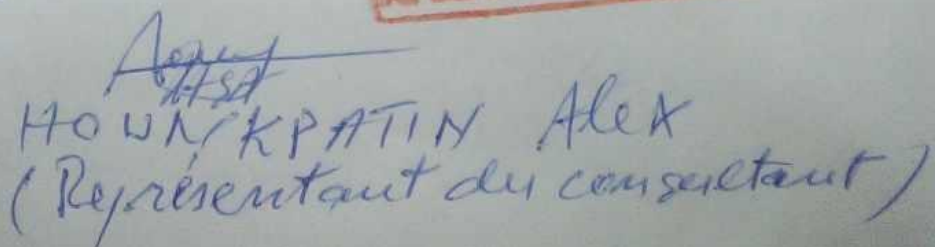 HOUNKPATIN Alex
(Représentant du consultant)